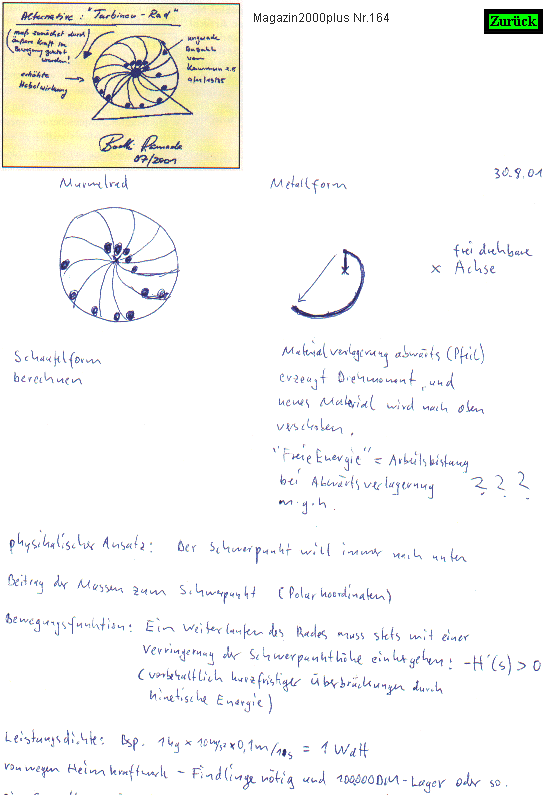 Magazin2000plus Nr.164
Zurück
Alternative: "Turbinen-Rad"
(muß zunächst durch
äußere Kraft in
Bewegung gesetzt
werden!)
erhöhte
Hebelwirkung
ungerade
Anzahl
von
Kammern z.B.
07/2001
30.8.01
Murmelrad
Metallform
frei drehbare
x Achse
Schaufelform
berechnen
Materialverlagerung abwärts (Pfeil)
erzeugt Drehmoment, und
neues Material wird nach oben
verschoben.
"Freie Energie" = Arbeitsleistung
bei Abwärtsverlagerung
m·g·h.
? ? ?
physikalischer Ansatz: Der Schwerpunkt will immer nach unten
Beitrag der Massen zum Schwerpunkt (Polarkoordinaten)
Bewegungsfunktion: Ein Weiterlaufen des Rades muss stets mit einer
Verringerung der Schwerpunkthöhe einhergehen: -H'(s) > 0
(vorbehaltlich kurzfristiger Überbrückungen durch
kinetische Energie)
Leistungsdichte: Bsp. 1kg x 10m/s² x 0,1m/1s = 1 Watt
von wegen Heimkraftwerk - Findlinge nötig und 100.000DM-Lager oder so.